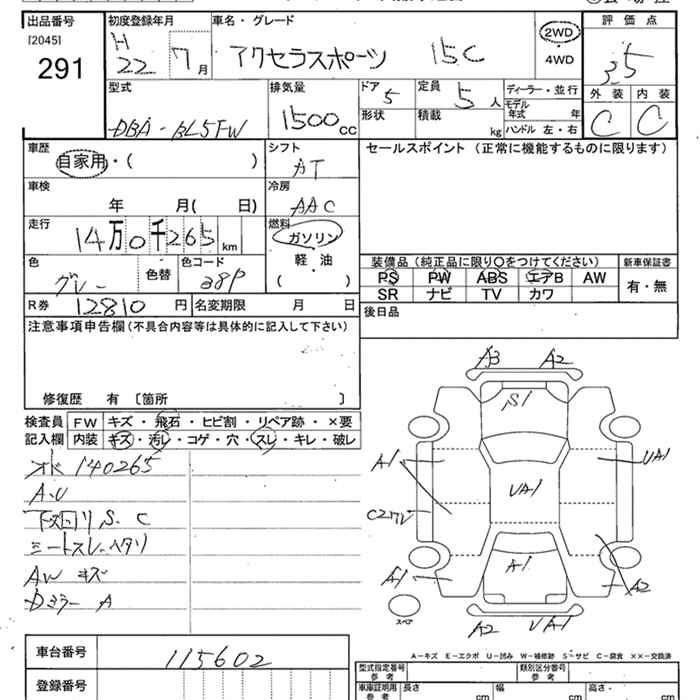 出品番号
[2045]
291
初度登録年月
H
22 7 月
車名・グレード
アクセラスポーツ 15C
2WD
・
4WD
評価点
3.5
外装 内装
C C
型式
DBA-BL5FW
排気量
1500 cc
ドア
5
形状
定員
5 人
積載
kg
ディーラー・並行
モデル
年式 年
ハンドル 左・右
車歴
自家用・( )
シフト
AT
セールスポイント (正常に機能するものに限ります)
車検
年 月( 日)
冷房
AAC
走行
14万0千265 km
燃料
ガソリン
軽・油
( )
色
グレー
色替
色コード
38P
装備品 (純正品に限り○をつけてください)
新車保証書
PS PW ABS エアB AW
SR ナビ TV カワ
有・無
R券 12810 円
名変期限 月 日
後日品
注意事項申告欄(不具合内容等は具体的に記入して下さい)
修復歴 有 〔箇所 〕
検査員
記入欄
FW キズ・飛石・ヒビ割・リペア跡・×要
内装 キズ・汚レ・コゲ・穴・スレ・キレ・破レ
オド 140265
A.U
下回り S. C
シートスレ.ヘタリ
AW キズ
Dミラー A
A3 A2
S1
A1
UA1
UA1
A1
A1
A2
A2 UA1
スペア
A-キズ E-エクボ U-凹み W-補修跡 S-サビ C-腐食 ××-交換済
車台番号
115602
登録番号
型式指定番号
参考
類別区分番号
参考
車庫証明用
参考
長さ cm
幅 cm
高さ・ cm